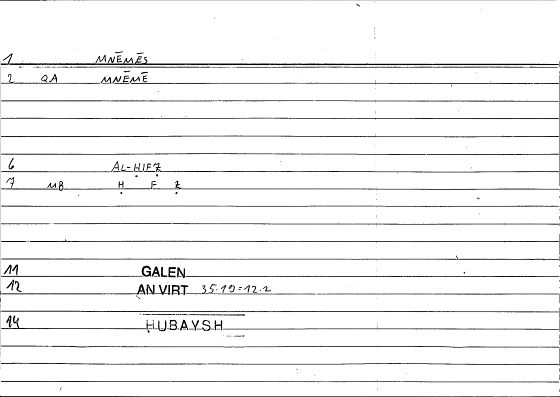 1 MNĒMĒS
2 QA MNĒMĒ
6 AL-ḤIFẒ
7 MB Ḥ F Ẓ
11 GALEN
12 AN VIRT 35.19=12.2
14 HUBAYSH